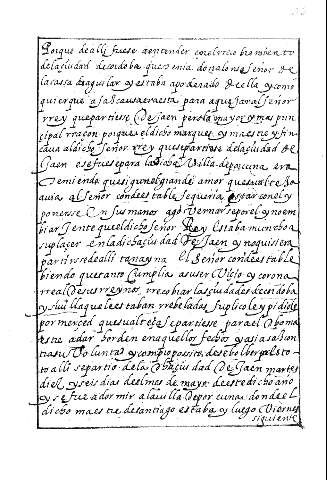 Porque de alli fuese a entender en el trecio bio miento
de la çiudad de cordoba que tenia don alonso señor de
la cassa de aguilar y estaba apoderado de ella y como
quier que a la Scausa era esta para aquejar al señor
rrey que partiese de jaen pero la mayor y mas prin
cipal rraçon porque el dicho marques y maestre fin
caua al dicho señor rrey que se partiese de la çiudad de
Jaen o se fuese para la dicha villa de porcuna era
temiendo que sigun el grande amor que su alteza
auia al señor condestable se queria con el y
ponerse en sus manos a go vernar se por el y no em
biar gente que el dicho señor Rey estaba mucho a
su plaçer en la dicha çiudad de Jaen y no quisiera
partirse de alli tan ayna El señor condestable
biendo que tanto cumplia a su serviçio y corona
rreal de sus rreynos rrecobrar las çiudades de cordoba
y siuilla que le estaban rrebeladas suplicole y pidiole
por merçed que su alteza se partiese para el
este a dar horden en aquellos fechos y assi a
su voluntad y conproposito de se bolber presto
alli se partio de la dicha çiudad de Jaen martes
diez y seis dias del mes de mayo de este dicho año
y se fue a dormir a la uilla de porcuna donde el
dicho maestre de santiago estaba y luego Viernes
siguiente